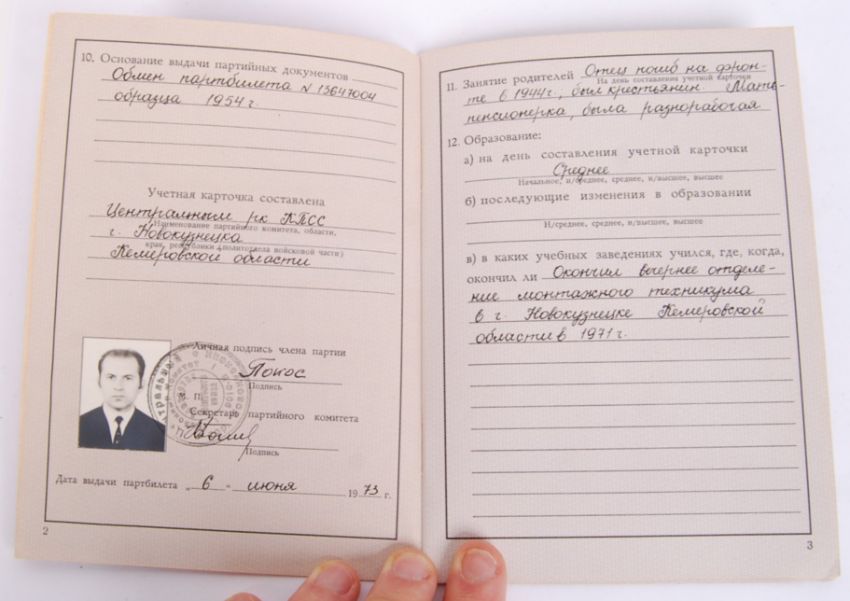 10. Основание выдачи партийных документов
Обмен партбилета N 13647004
образца 1954 г.
Учетная карточка составлена
Центральным рк КПСС
Наименование партийного комитета, области,
г. Новокузнецка
края, республики (политотдела войсковой части)
Кемеровской области
Личная подпись члена партии
Подпись
М. П.
Секретарь партийного комитета
Подпись
Дата выдачи партбилета „ 6 " июня 1973 г.
2
11. Занятие родителей Отец погиб на фрон-
На день составления учетной карточки
те в 1944г., был крестьянин. Мать-
пенсионерка, была разнорабочая
12. Образование:
а) на день составления учетной карточки
Среднее
Начальное, н/среднее, среднее, н/высшее, высшее
б) последующие изменения в образовании
Н/среднее, среднее, н/высшее, высшее
в) в каких учебных заведениях учился, где, когда,
окончил ли Окончил вечернее отделе-
ние монтажного техникума
в г. Новокузнецке Кемеровской
области в 1971 г.
3